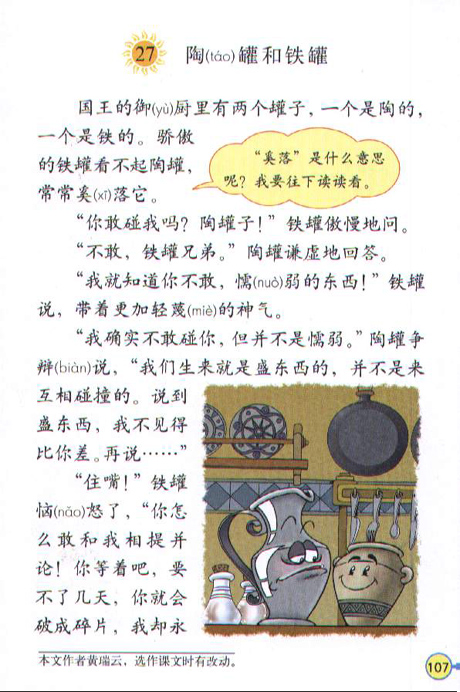 27 陶(táo)罐和铁罐
国王的御(yù)厨里有两个罐子，一个是陶的，
一个是铁的。骄傲
的铁罐看不起陶罐，
常常奚(xī)落它。
“奚落”是什么意思
呢？我要往下读读看。
“你敢碰我吗？陶罐子！”铁罐傲慢地问。
“不敢，铁罐兄弟。”陶罐谦虚地回答。
“我就知道你不敢，懦(nuò)弱的东西！”铁罐
说，带着更加轻蔑(miè)的神气。
“我确实不敢碰你，但并不是懦弱。”陶罐争
辩(biàn)说，“我们生来就是盛东西的，并不是来
互相碰撞的。说到
盛东西，我不见得
比你差。再说……”
“住嘴！”铁罐
恼(nǎo)怒了，“你怎
么敢和我相提并
论！你等着吧，要
不了几天，你就会
破成碎片，我却永
本文作者黄瑞云，选作课文时有改动。
107